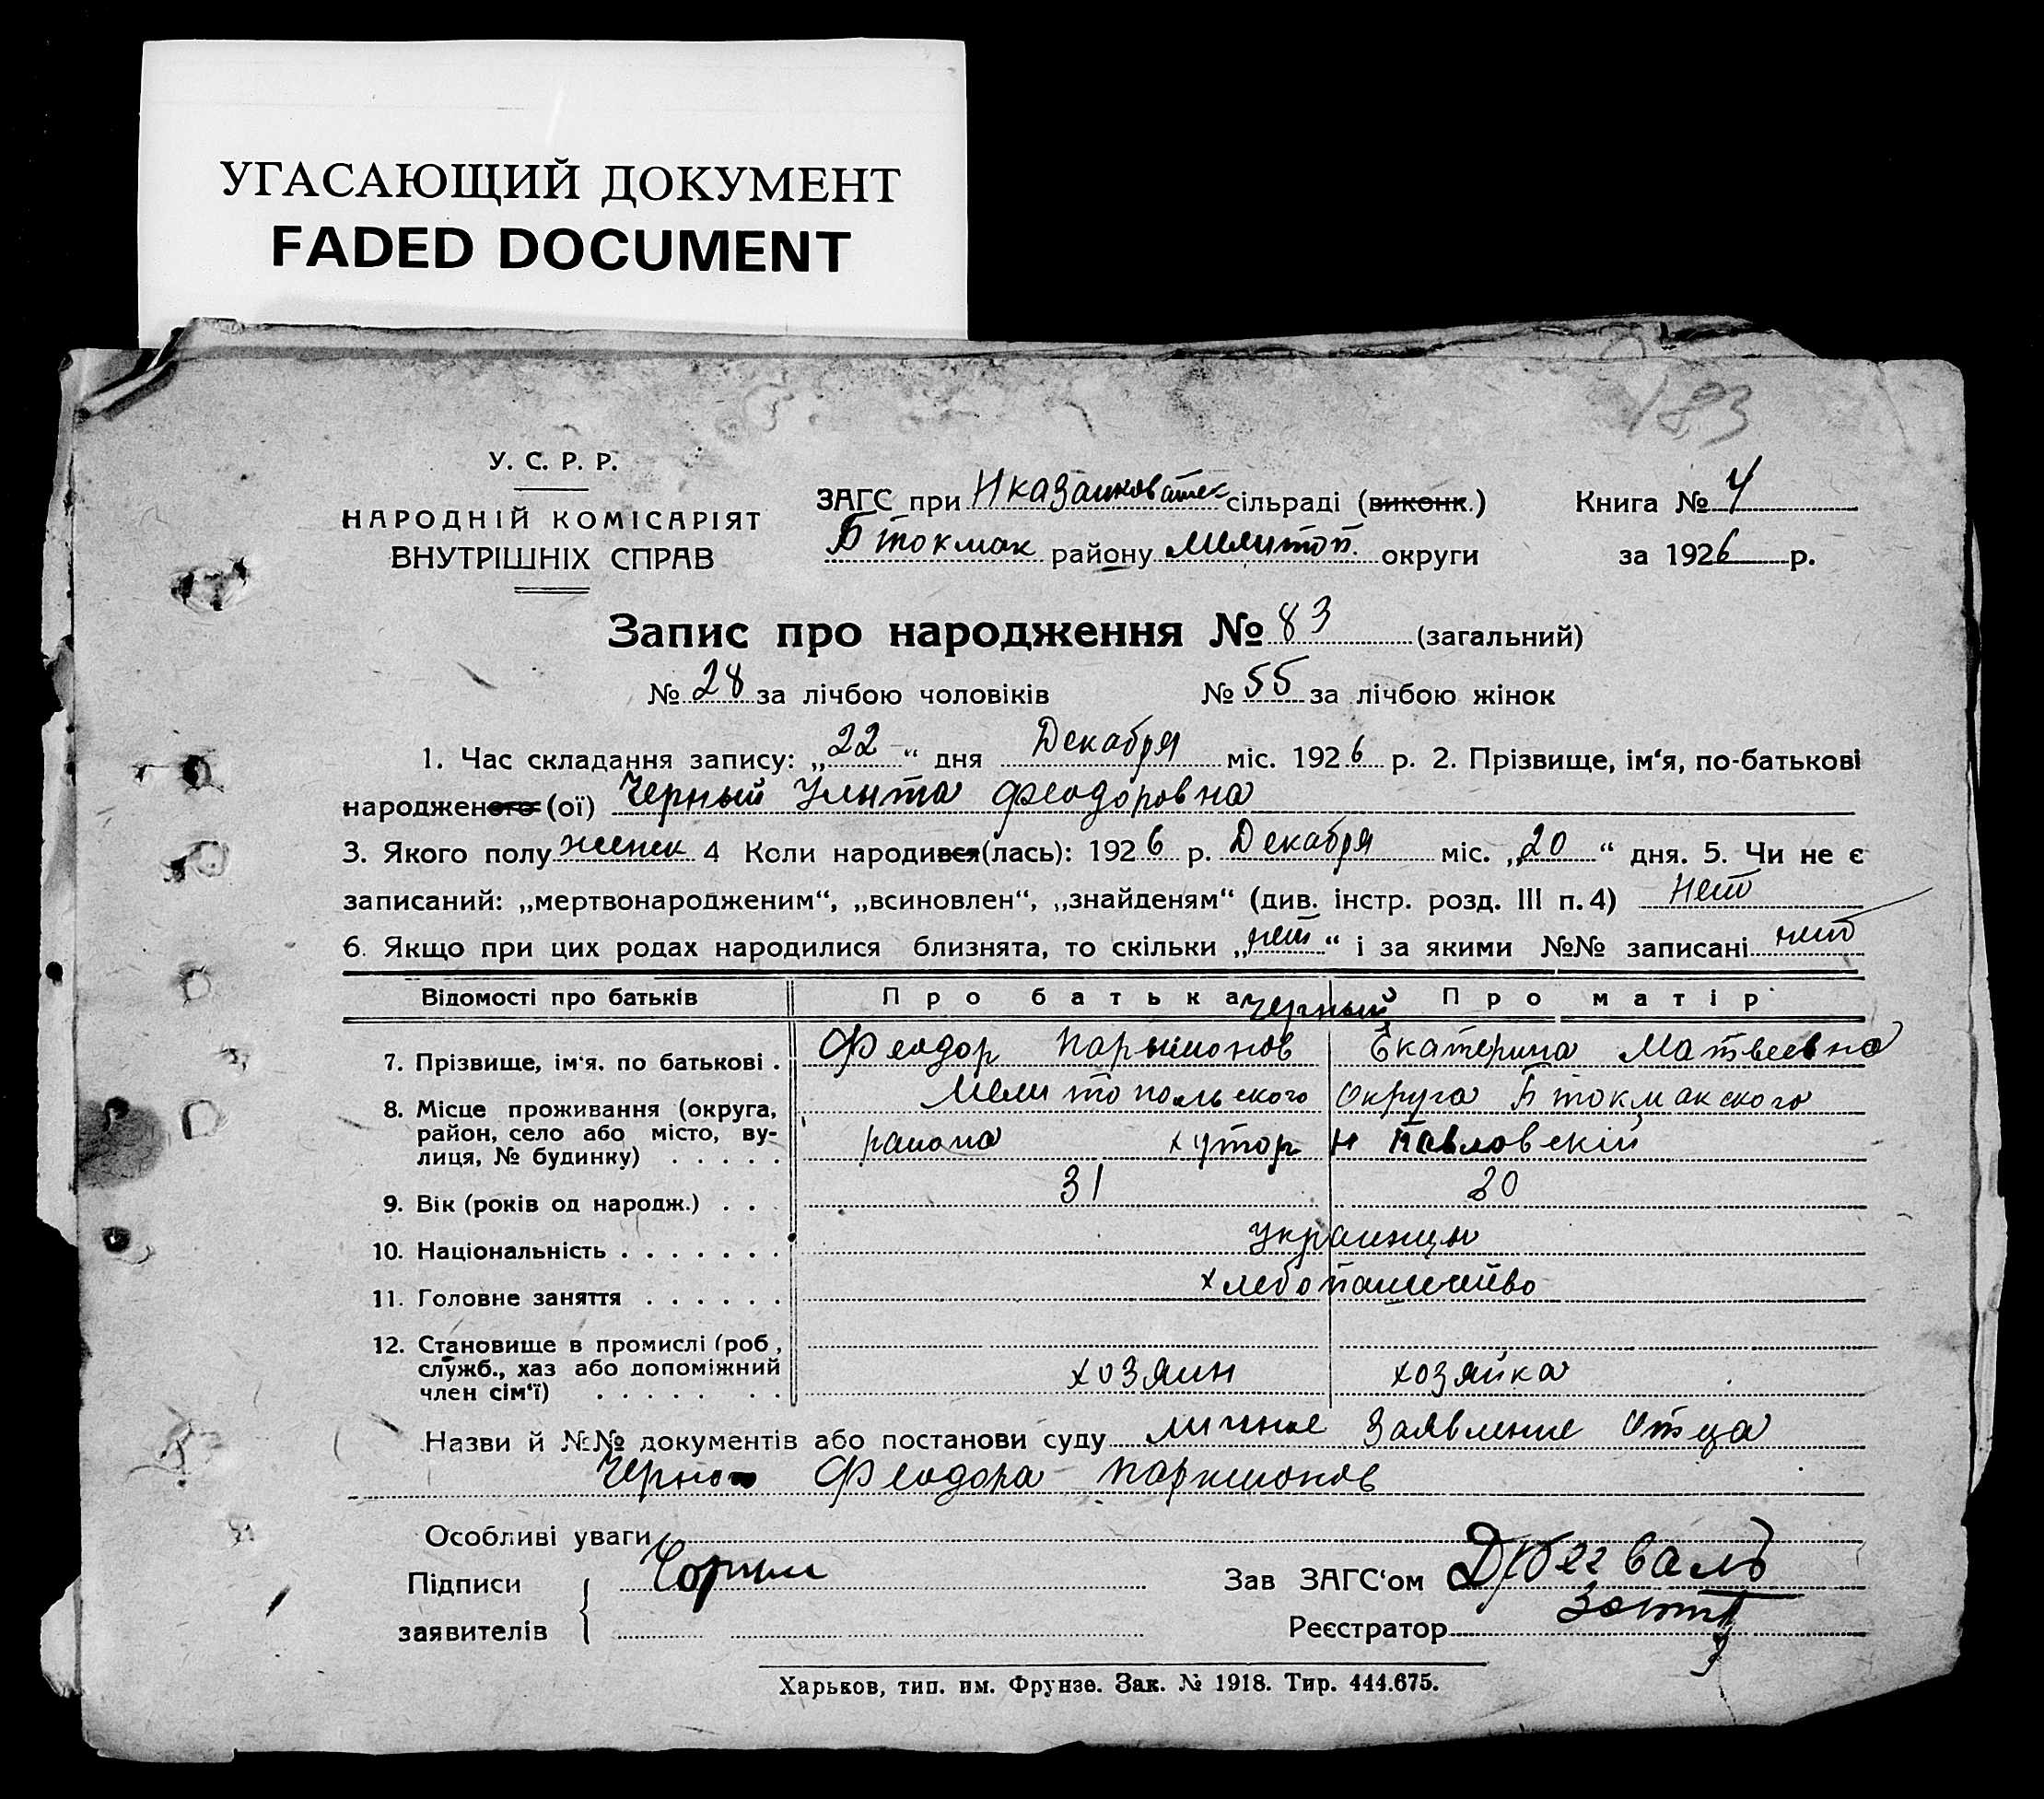 УГАСАЮЩИЙ ДОКУМЕНТ
FADED DOCUMENT
183
У. С. Р. Р.
НАРОДНІЙ КОМІСАРІЯТ
ВНУТРІШНІХ СПРАВ
ЗАГС при сільраді (виконк.)
Б токмак району Мелитоп. округи
Книга № 4
за 1926 р.
Запис про народження № 83 (загальний)
№ 28 за лічбою чоловіків № 55 за лічбою жінок
1. Час складання запису: „22“ дня Декабря міс. 1926 р. 2. Прізвище, ім‘я, по-батькові
народженого (ої) Черный Улита Феодоровна
3. Якого полу женск 4 Коли народився(лась): 1926 р. Декабря міс. „20“ дня. 5. Чи не є
записаний: „мертвонародженим“, „всиновлен“, „знайденям“ (див. інстр. розд. III п. 4) Нет
6. Якщо при цих родах народилися близнята, то скільки „нет“ і за якими №№ записані нет
Відомості про батьків Про батька Про матір
Черный
7. Прізвище, ім‘я. по батькові . Феодор Парымонов Екатерина Матвеевна
8. Місце проживання (округа, район, село або місто, ву-лиця, № будинку) . . . . . Мелитопольского Округа Б токмакского
района хутор Н Павловскій
9. Вік (років од народж.) . . . 31 30
10. Національність . . . . . . . Украинцы
11. Головне заняття . . . . . . хлебопашество
12. Становище в промислі (роб, служб., хаз або допоміжний член сім‘ї) . . . . . . . хозяин хозяйка
Назви й №№ документів або постанови суду личное Заявление Отца
Феодора Паримонов
Особливі уваги
Підписи
заявителів
Зав ЗАГС‘ом
Реєстратор
Харьков, тип. им. Фрунзе. Зак. № 1918. Тир. 444.675.